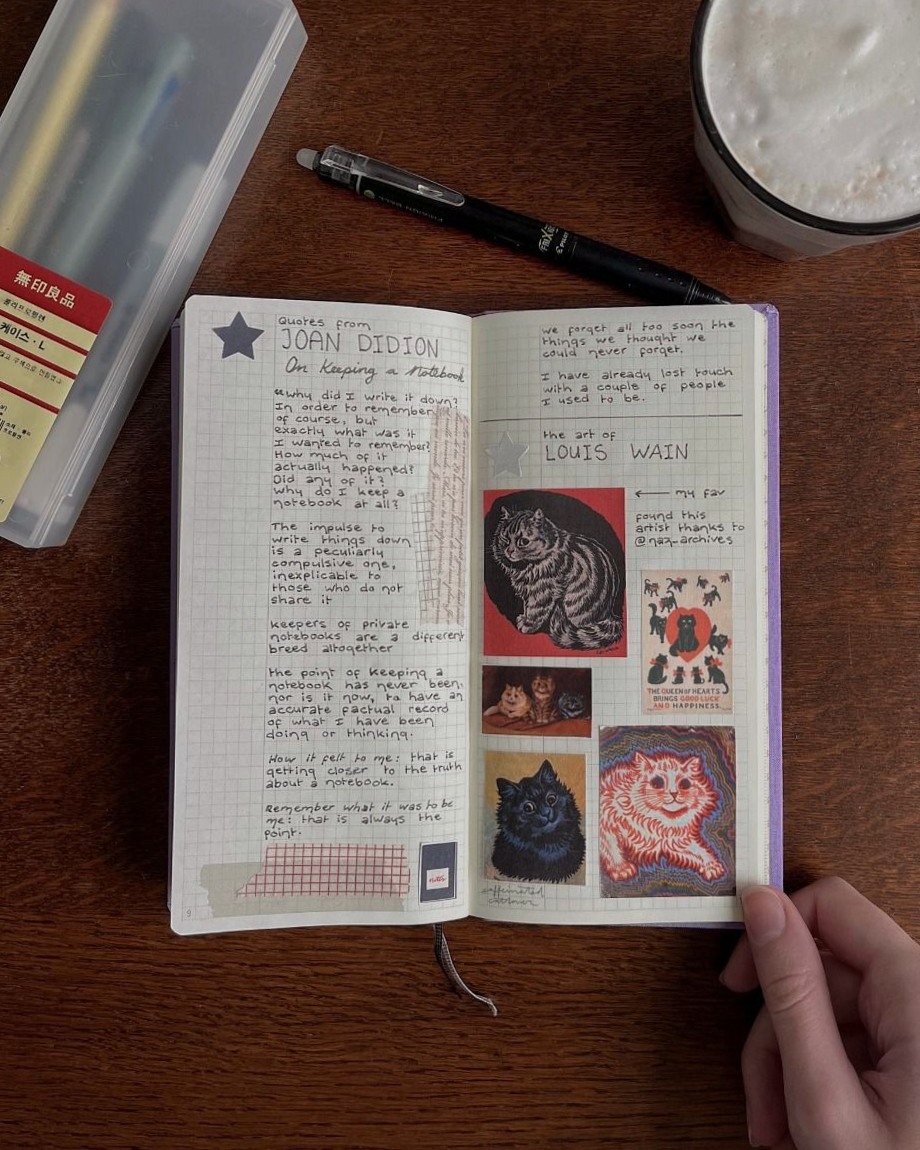 無印良品
폴리프로필렌
케이스 · L
PILOT
Quotes from
JOAN DIDION
On Keeping a Notebook
"why did I write it down?
In order to remember,
of course, but
exactly what was it
I wanted to remember?
How much of it
actually happened?
Did any of it?
why do I keep a
notebook at all?
The impulse to
write things down
is a peculiarly
compulsive one,
inexplicable to
those who do not
share it
keepers of private
notebooks are a different
breed altogether
the point of keeping a
notebook has never been,
nor is it now, to have an
accurate factual record
of what I have been
doing or thinking.
How it felt to me: that is
getting closer to the truth
about a notebook.
Remember what it was to be
me: that is always the
point.
9
we forget all too soon the
things we thought we
could never forget.
I have already lost touch
with a couple of people
I used to be.
the art of
LOUIS WAIN
← my fav
found this
artist thanks to
@naz_archives
THE QUEEN OF HEARTS
BRINGS GOOD LUCK
AND HAPPINESS.